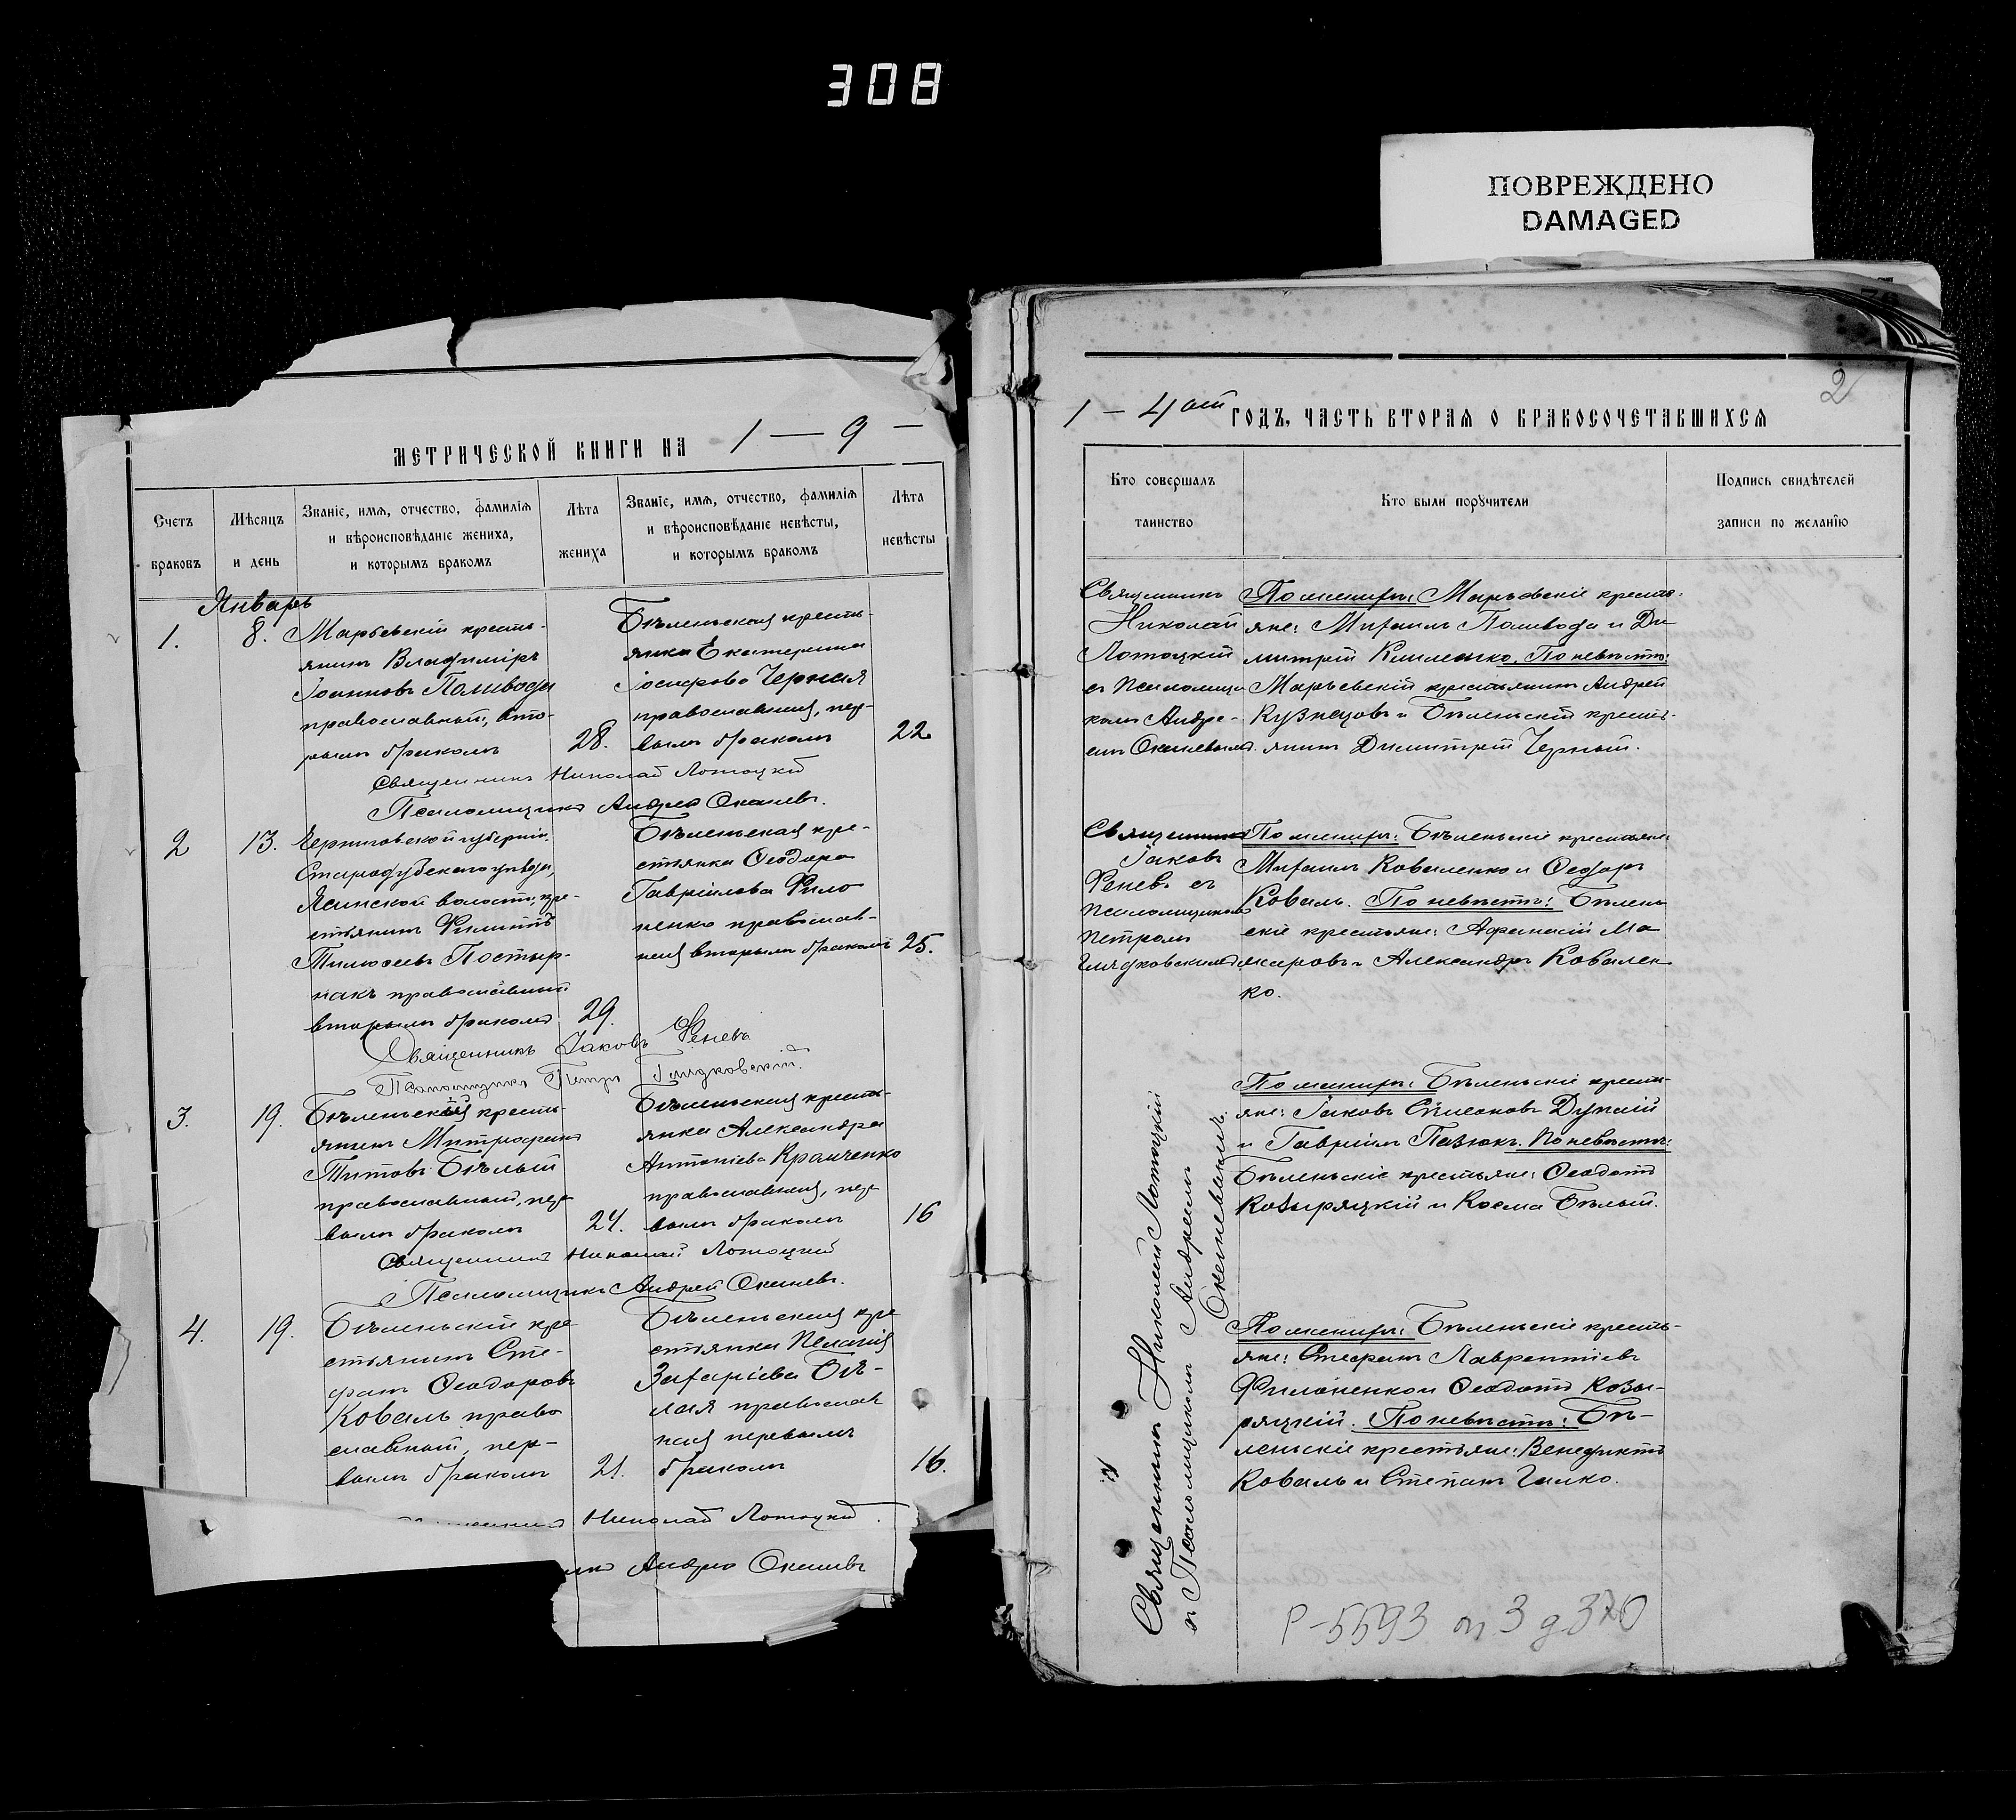 308
ПОВРЕЖДЕНО
DAMAGED
МЕТРИЧЕСКОЙ КНИГИ НА 1 — 9 —
Счетъ браковъ
Мѣсяцъ и день
Званіе, имя, отчество, фамилія
и вѣроисповѣданіе жениха,
и которымъ бракомъ
Лѣта жениха
Званіе, имя, отчество, фамилія
и вѣроисповѣданіе невѣсты,
и которымъ бракомъ
Лѣта невѣсты
Январь
1.
8.
Марьевскій кресть-
янинъ Владиміръ
Іоанновъ Поливода
православный, вто-
рымъ бракомъ
28.
Бѣленьская кресть-
янка Екатерина
Іосифова Черная
православная, пер-
вымъ бракомъ
22
Священникъ Николай Лотоцкій
Псаломщикъ Андрей
2
13.
Черниговской губерніи,
Стародубскаго уѣзда,
волости, кре-
стьянинъ Филиппъ
Тимофеевъ
православный
вторымъ бракомъ
29.
Бѣленьская кре-
стьянка Феодора
Гавріилова Фило
ненко православ-
ная вторымъ бракомъ
25.
Священникъ Іаковъ Феневъ
Псаломщикъ Петръ
3.
19.
Бѣленьскій кресть-
янинъ Митрофанъ
Титовъ Бѣлый
православный, пер
вымъ бракомъ
24.
Бѣленьская кресть-
янка Александра
Антоніева Кравченко
православная, пер
вымъ бракомъ
16
Священникъ Николай Лотоцкій
Псаломщикъ Андрей
4.
19.
Бѣленьскій кре
стьянинъ Сте-
фанъ Феодоровъ
Коваль право
славный, пер-
вымъ бракомъ
21.
Бѣленьская кре
стьянка Пелагія
Захаріева Бѣ-
лая православ
ная первымъ
бракомъ
16.
Николай Лотоцкій
Андрей
2
1 — 4 ой ГОДЪ, ЧАСТЬ ВТОРАЯ О БРАКОСОЧЕТАВШИХСЯ
Кто совершалъ таинство
Кто были поручители
Подпись свидѣтелей
записи по желанію
Священникъ
Николай
Лотоцкій
съ псаломщи
комъ Андре-
емъ
По женихѣ: Марьевскіе кресть-
яне: Михаилъ Поливода и Ди
митрій Клименко. По невѣстѣ:
Марьевскій крестьянинъ Андрей
Кузнецовъ и Бѣленьскій кресть-
янинъ Димитрій Черный.
Священникъ
Іаковъ
Феневъ съ
псаломщикомъ
Петромъ
По женихѣ: Бѣленьскіе крестьяне:
Михаилъ Коваленко и Феодоръ
Коваль. По невѣстѣ: Бѣлень
скіе крестьяне: Афанасій Ма
каровъ и Александръ Ковален
ко.
По женихѣ: Бѣленьскіе кресть-
яне: Іаковъ Симеоновъ
и Гавріилъ Пазюкъ. По невѣстѣ:
Бѣленьскіе крестьяне: Феодотъ
Козыряцкій и Косма Бѣлый.
По женихѣ: Бѣленьскіе кресть-
яне: Стефанъ Лаврентіевъ
Филоненко и Феодотъ Козы-
ряцкій. По невѣстѣ: Бѣ-
леньскіе крестьяне: Венедиктъ
Коваль и Степанъ Галко.
Священникъ Николай Лотоцкій
и Псаломщикомъ Андреемъ
Р-5593 оп 3 д 370